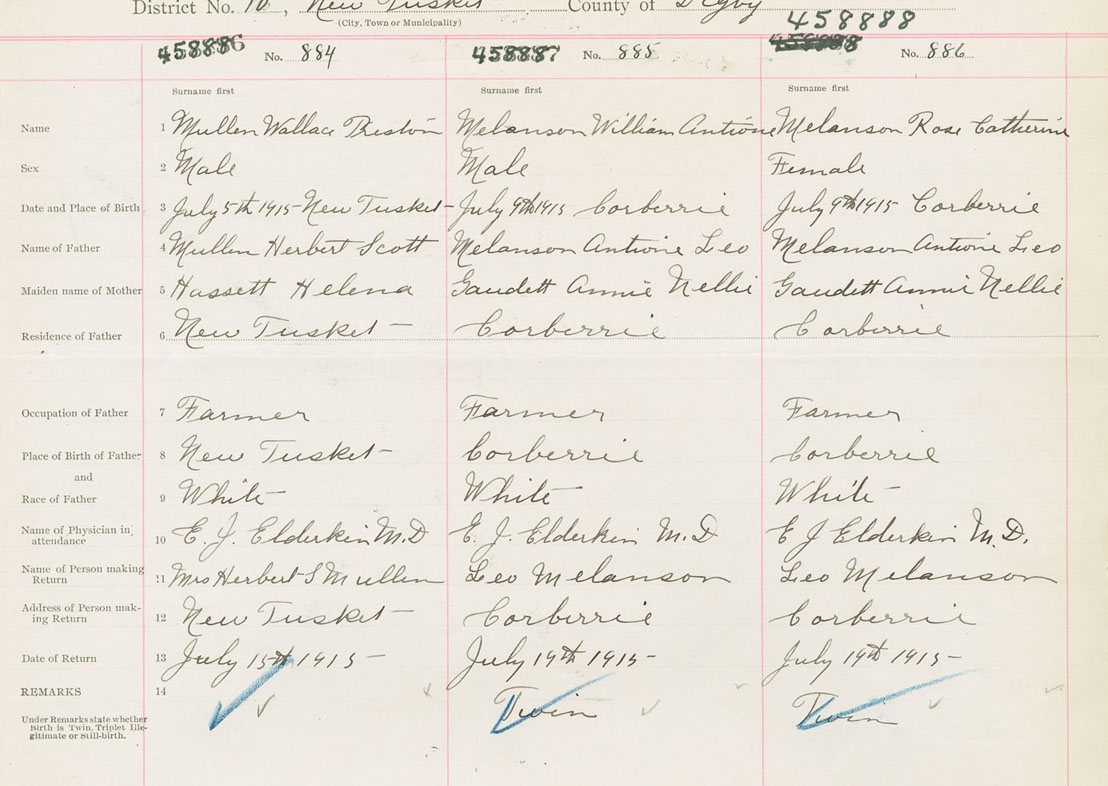 District No. 10, New Tusket County of Digby
(City, Town or Municipality)
458888
458886 No. 884 458887 No. 885 458888 No. 886
Surname first Surname first Surname first
Name 1 Mullen Wallace Preston Melanson William Antione Melanson Rose Catherine
Sex 2 Male Male Female
Date and Place of Birth 3 July 5th 1915 - New Tusket - July 9th 1915 Corberrie July 9th 1915 Corberrie
Name of Father 4 Mullen Herbert Scott Melanson Antione Leo Melanson Antione Leo
Maiden name of Mother 5 Hassett Helena Gaudett Annie Nellie Gaudett Annie Nellie
Residence of Father 6 New Tusket - Corberrie Corberrie
Occupation of Father 7 Farmer Farmer Farmer
Place of Birth of Father 8 New Tusket - Corberrie Corberrie
and
Race of Father 9 White White White
Name of Physician in
attendance 10 E. J. Elderkin M.D E. J. Elderkin M.D E J Elderkin M.D.
Name of Person making
Return 11 Mrs Herbert S Mullen Leo Melanson Leo Melanson
Address of Person mak-
ing Return 12 New Tusket - Corberrie Corberrie
Date of Return 13 July 15th 1915 - July 19th 1915 - July 19th 1915 -
REMARKS 14
Twin Twin
Under Remarks state whether
Birth is Twin, Triplet Ille-
gitimate or Still-birth.